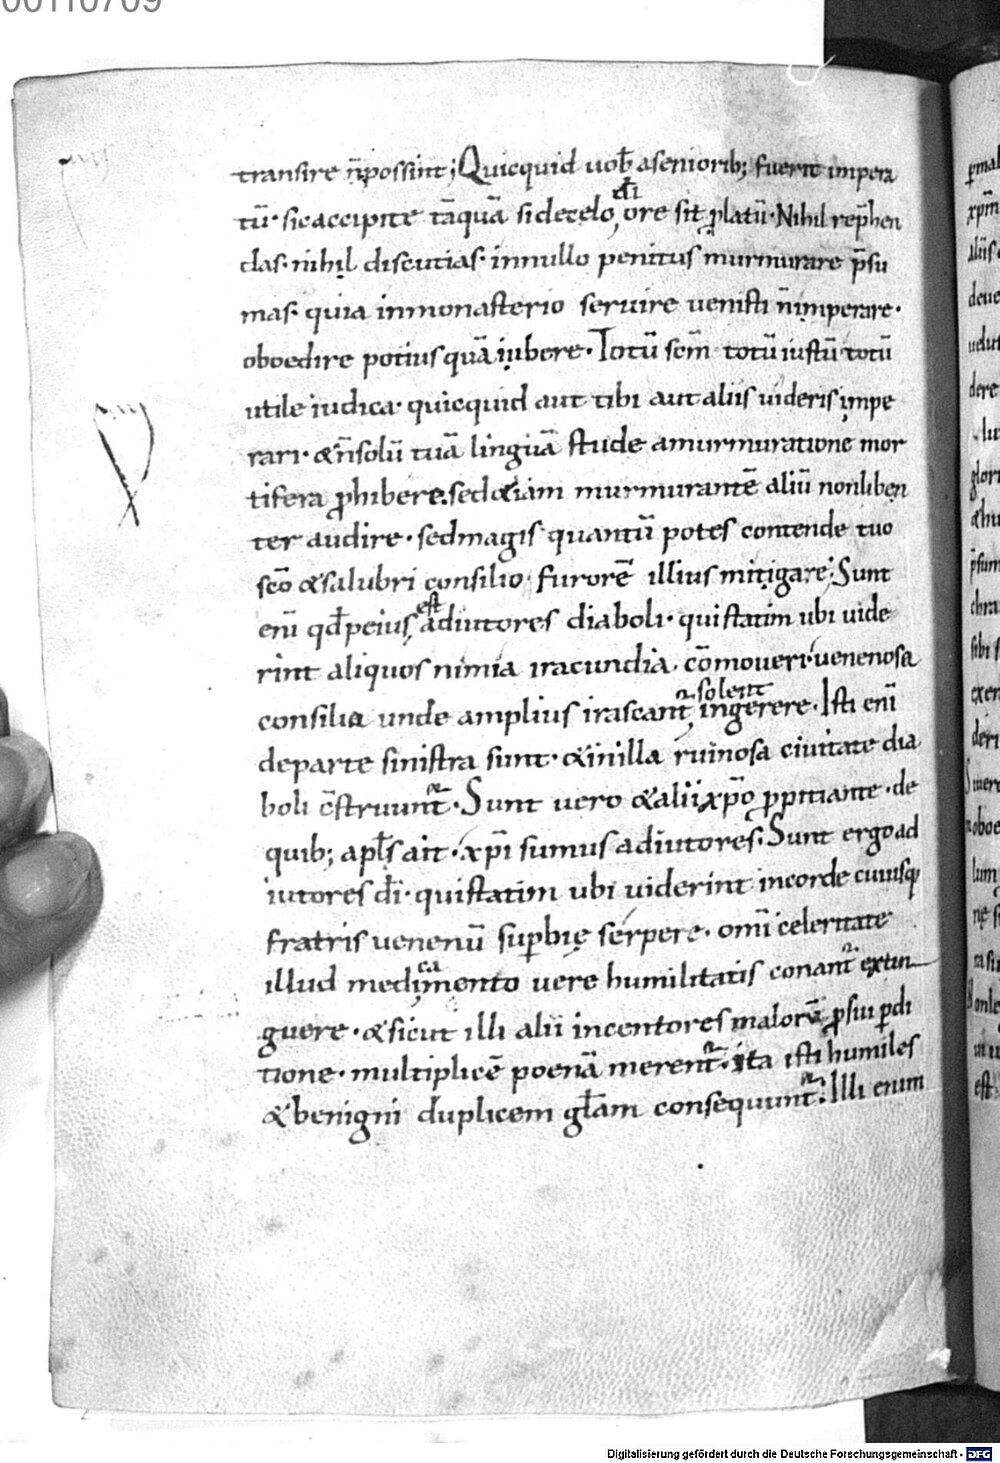 00110709
transire n̄ possint; Quicquid uob̄ asenioribꝫ fuerit impera
tū· sicaccipite tāquā sidecelo di ore sit ꝓlatū· Nihil rep̄hen
das· nihil discutias· innullo penitus murmurare p̄su
mas· quia inmonasterio seruire uenisti n̄ imperare·
oboedire potius quā iubere· Totū sc̄m totū iustū totū
utile iudica· quicquid aut tibi aut aliis uideris impe
rari· & n̄ solū tuā linguā stude amurmuratione mor
tifera ꝓhibere. sed &iam murmurantē aliū nonliben
ter audire· sedmagis quantū potes contende tuo
sc̄o &salubri consilio furorē illius mitigare; Sunt
enī qd̄ peius est adiutores diaboli· quistatim ubi uide
rint aliquos nimia iracundia cōmoueri· uenenosa
consilia unde amplius irascant᷑ solent ingerere· Isti enī
departe sinistra sunt· &inilla ruinosa ciuitate dia
boli c̄struunt᷑· Sunt uero &alii xp̄o ꝓpitiante· de
quibꝫ apl̄s ait· xp̄i sumus adiutores· Sunt ergo ad
iutores dī· quistatim ubi uiderint incorde cuiusq
fratris uenenū suꝑbię serpere· omī celeritate
illud medicamento uere humilitatis conant᷑ extin
guere· &sicut illi alii incentores malorū ꝓ sui ꝑdi
tione· multiplicē poenā merent᷑· ita isti humiles
&benigni duplicem gl̄am consequunt᷑· Illi enim
Digitalisierung gefördert durch die Deutsche Forschungsgemeinschaft - DFG